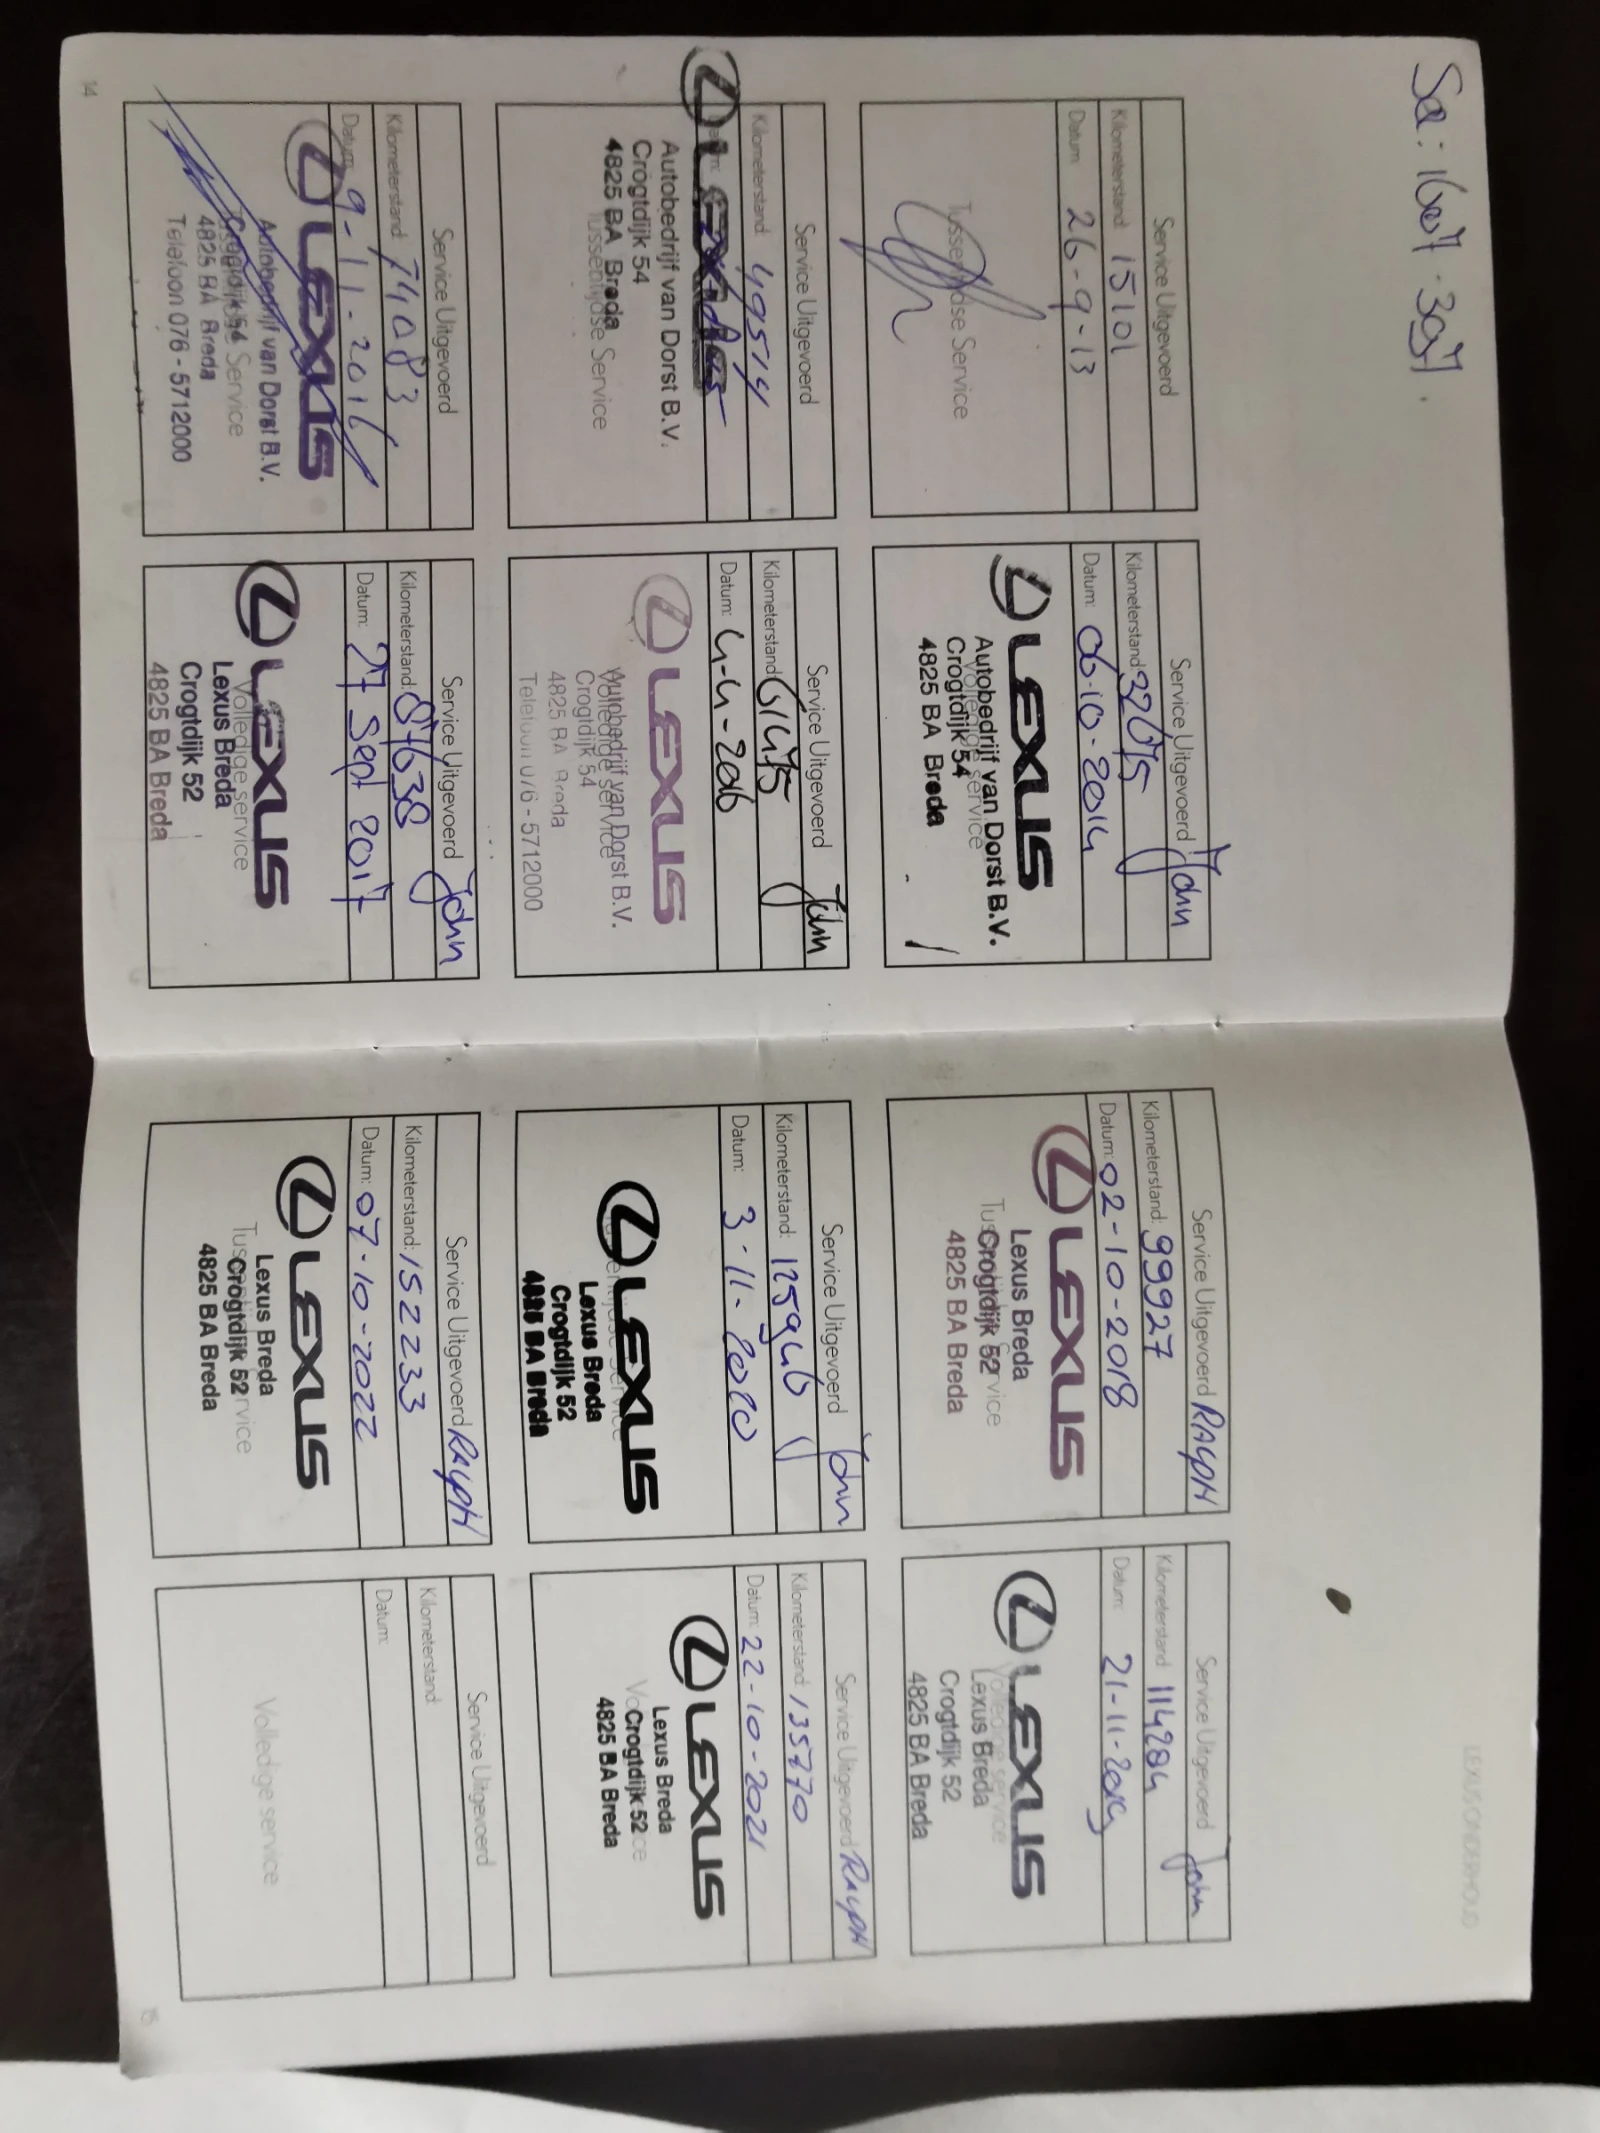 Service Uitgevoerd
Kilometerstand: 15101
Datum 26-9-13
Tussentijdse Service
Service Uitgevoerd John
Kilometerstand: 32075
Datum: 06-10-2014
LEXUS
Autobedrijf van Dorst B.V.
Volledige service
Crogtdijk 54
4825 BA Breda
Service Uitgevoerd
Kilometerstand: 49514
LEXUS
Autobedrijf van Dorst B.V.
Crogtdijk 54
4825 BA Breda
Tussentijdse Service
Service Uitgevoerd John
Kilometerstand: 61475
Datum: 4-4-2016
LEXUS
Autobedrijf van Dorst B.V.
Volledige service
Crogtdijk 54
4825 BA Breda
Telefoon 076 - 5712000
Service Uitgevoerd
Kilometerstand: 74083
Datum: 9-11-2016
LEXUS
Autobedrijf van Dorst B.V.
Crogtdijk 54
Service
4825 BA Breda
Telefoon 076 - 5712000
Service Uitgevoerd John
Kilometerstand: 87638
Datum: 27 sept 2017
LEXUS
Volledige service
Lexus Breda
Crogtdijk 52
4825 BA Breda
14
LEXUS ONDERHOUD
Service Uitgevoerd RALPH
Kilometerstand: 99927
Datum: 02-10-2018
LEXUS
Lexus Breda
Tussentijdse Service
Crogtdijk 52
4825 BA Breda
Service Uitgevoerd John
Kilometerstand 114284
Datum: 21-11-2019
LEXUS
Volledige service
Lexus Breda
Crogtdijk 52
4825 BA Breda
Service Uitgevoerd John
Kilometerstand: 125946
Datum: 3-11-2020
LEXUS
Tussentijdse Service
Lexus Breda
Crogtdijk 52
4825 BA Breda
Service Uitgevoerd RALPH
Kilometerstand: 135770
Datum: 22-10-2021
LEXUS
Lexus Breda
Crogtdijk 52
4825 BA Breda
Service Uitgevoerd RALPH
Kilometerstand: 152233
Datum: 07-10-2022
LEXUS
Lexus Breda
Crogtdijk 52
4825 BA Breda
Service Uitgevoerd
Kilometerstand:
Datum:
Volledige service
15